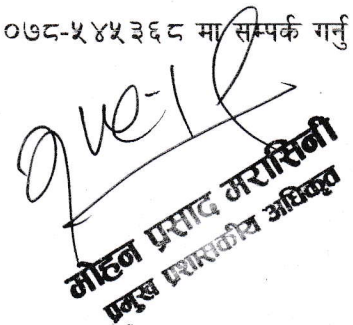 ०७८-५४५३६८ मा सम्पर्क गर्नु
मोहन प्रसाद मरासिनी
प्रमुख प्रशासकीय अधिकृत